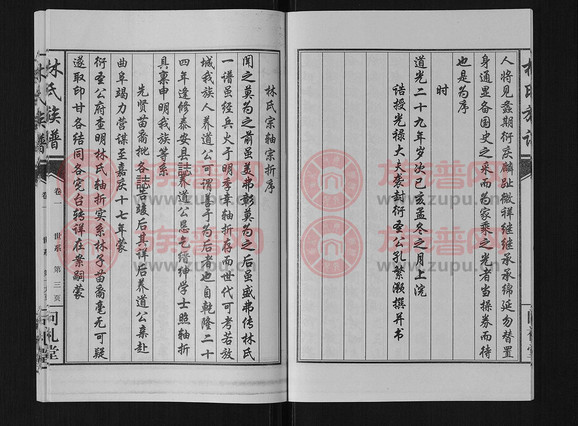 人将见螽期衍庆麟趾徵祥继继承承绵延勿替置
身通显备国史之采而为家乘之光者当操券而待
也是为序
时
道光二十九年岁次己亥孟冬之月上浣
诰授光禄大夫袭封衍圣公孔繁灏撰并书
林氏宗轴宗折序
闻之莫为之前虽美弗彰莫为之后虽盛弗传林氏
一谱虽经兵火于明季幸轴折存而世代可考若放
城我族人养道公可谓善于为后者也自乾隆二十
四年逢修泰安县誌养道公恳乞缙绅学士照轴折
具禀申明我族等系
先贤苗裔批各誌告竣后其详后养道公亲赴
曲阜竭力营谋至嘉庆十七年蒙
衍圣公府查明林氏轴折实系林子苗裔毫无可疑
遂取印甘各结同各宪台赂详在案嗣蒙
林氏族谱
卷一
世系
第三页
问礼堂
林氏族谱
族谱网
www.zupu.cn
族谱网
www.zupu.cn